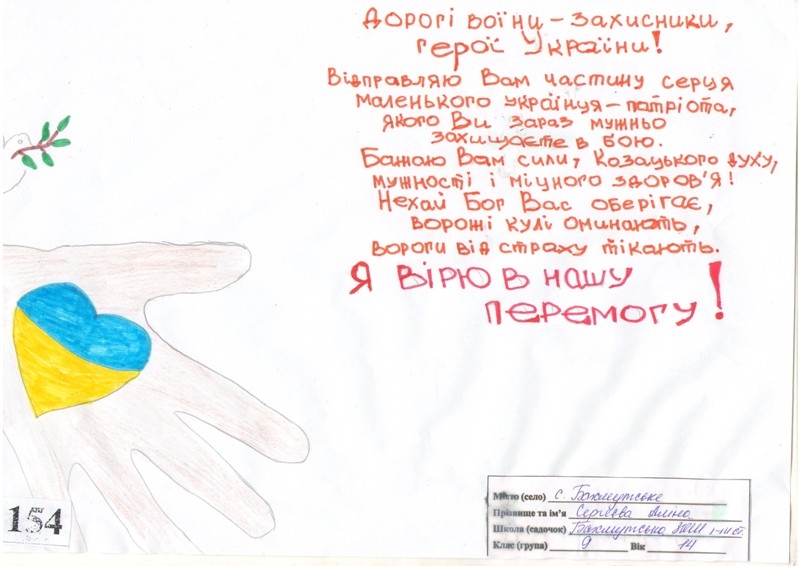 Дорогі воїни – захисники,
герої України!
Відправляю Вам частину серця
маленького українця – патріота,
якого Ви зараз мужньо
захищаєте в бою.
Бажаю Вам сили, Козацького духу,
мужності і міцного здоров'я!
Нехай Бог Вас оберігає,
ворожі кулі оминають,
вороги від страху тікають.
Я вірю в нашу
перемогу!
Місто (село) с. Бахмутське
Прізвище та ім'я Сергєєва Аліна
Школа (садочок) Бахмутська ЗОШ І-ІІІ ст.
Клас (група) 9 Вік 14
154